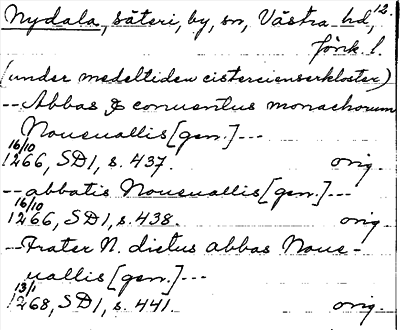 Nydala, säteri, by, sn, Västra hd, 12.
Jönk. l.
(under medeltiden cistercienserkloster)
-- Abbas & conuentus monachorum
Noueuallis [gen.] ---
16/10
1266, SD1, s. 437. orig.
-- abbatis Noueuallis [gen.] ---
16/10
1266, SD1, s. 438. orig.
-- Frater N. dictus abbas Noue-
uallis [gen.] ---
13/1
1268, SD1, s. 441. orig.